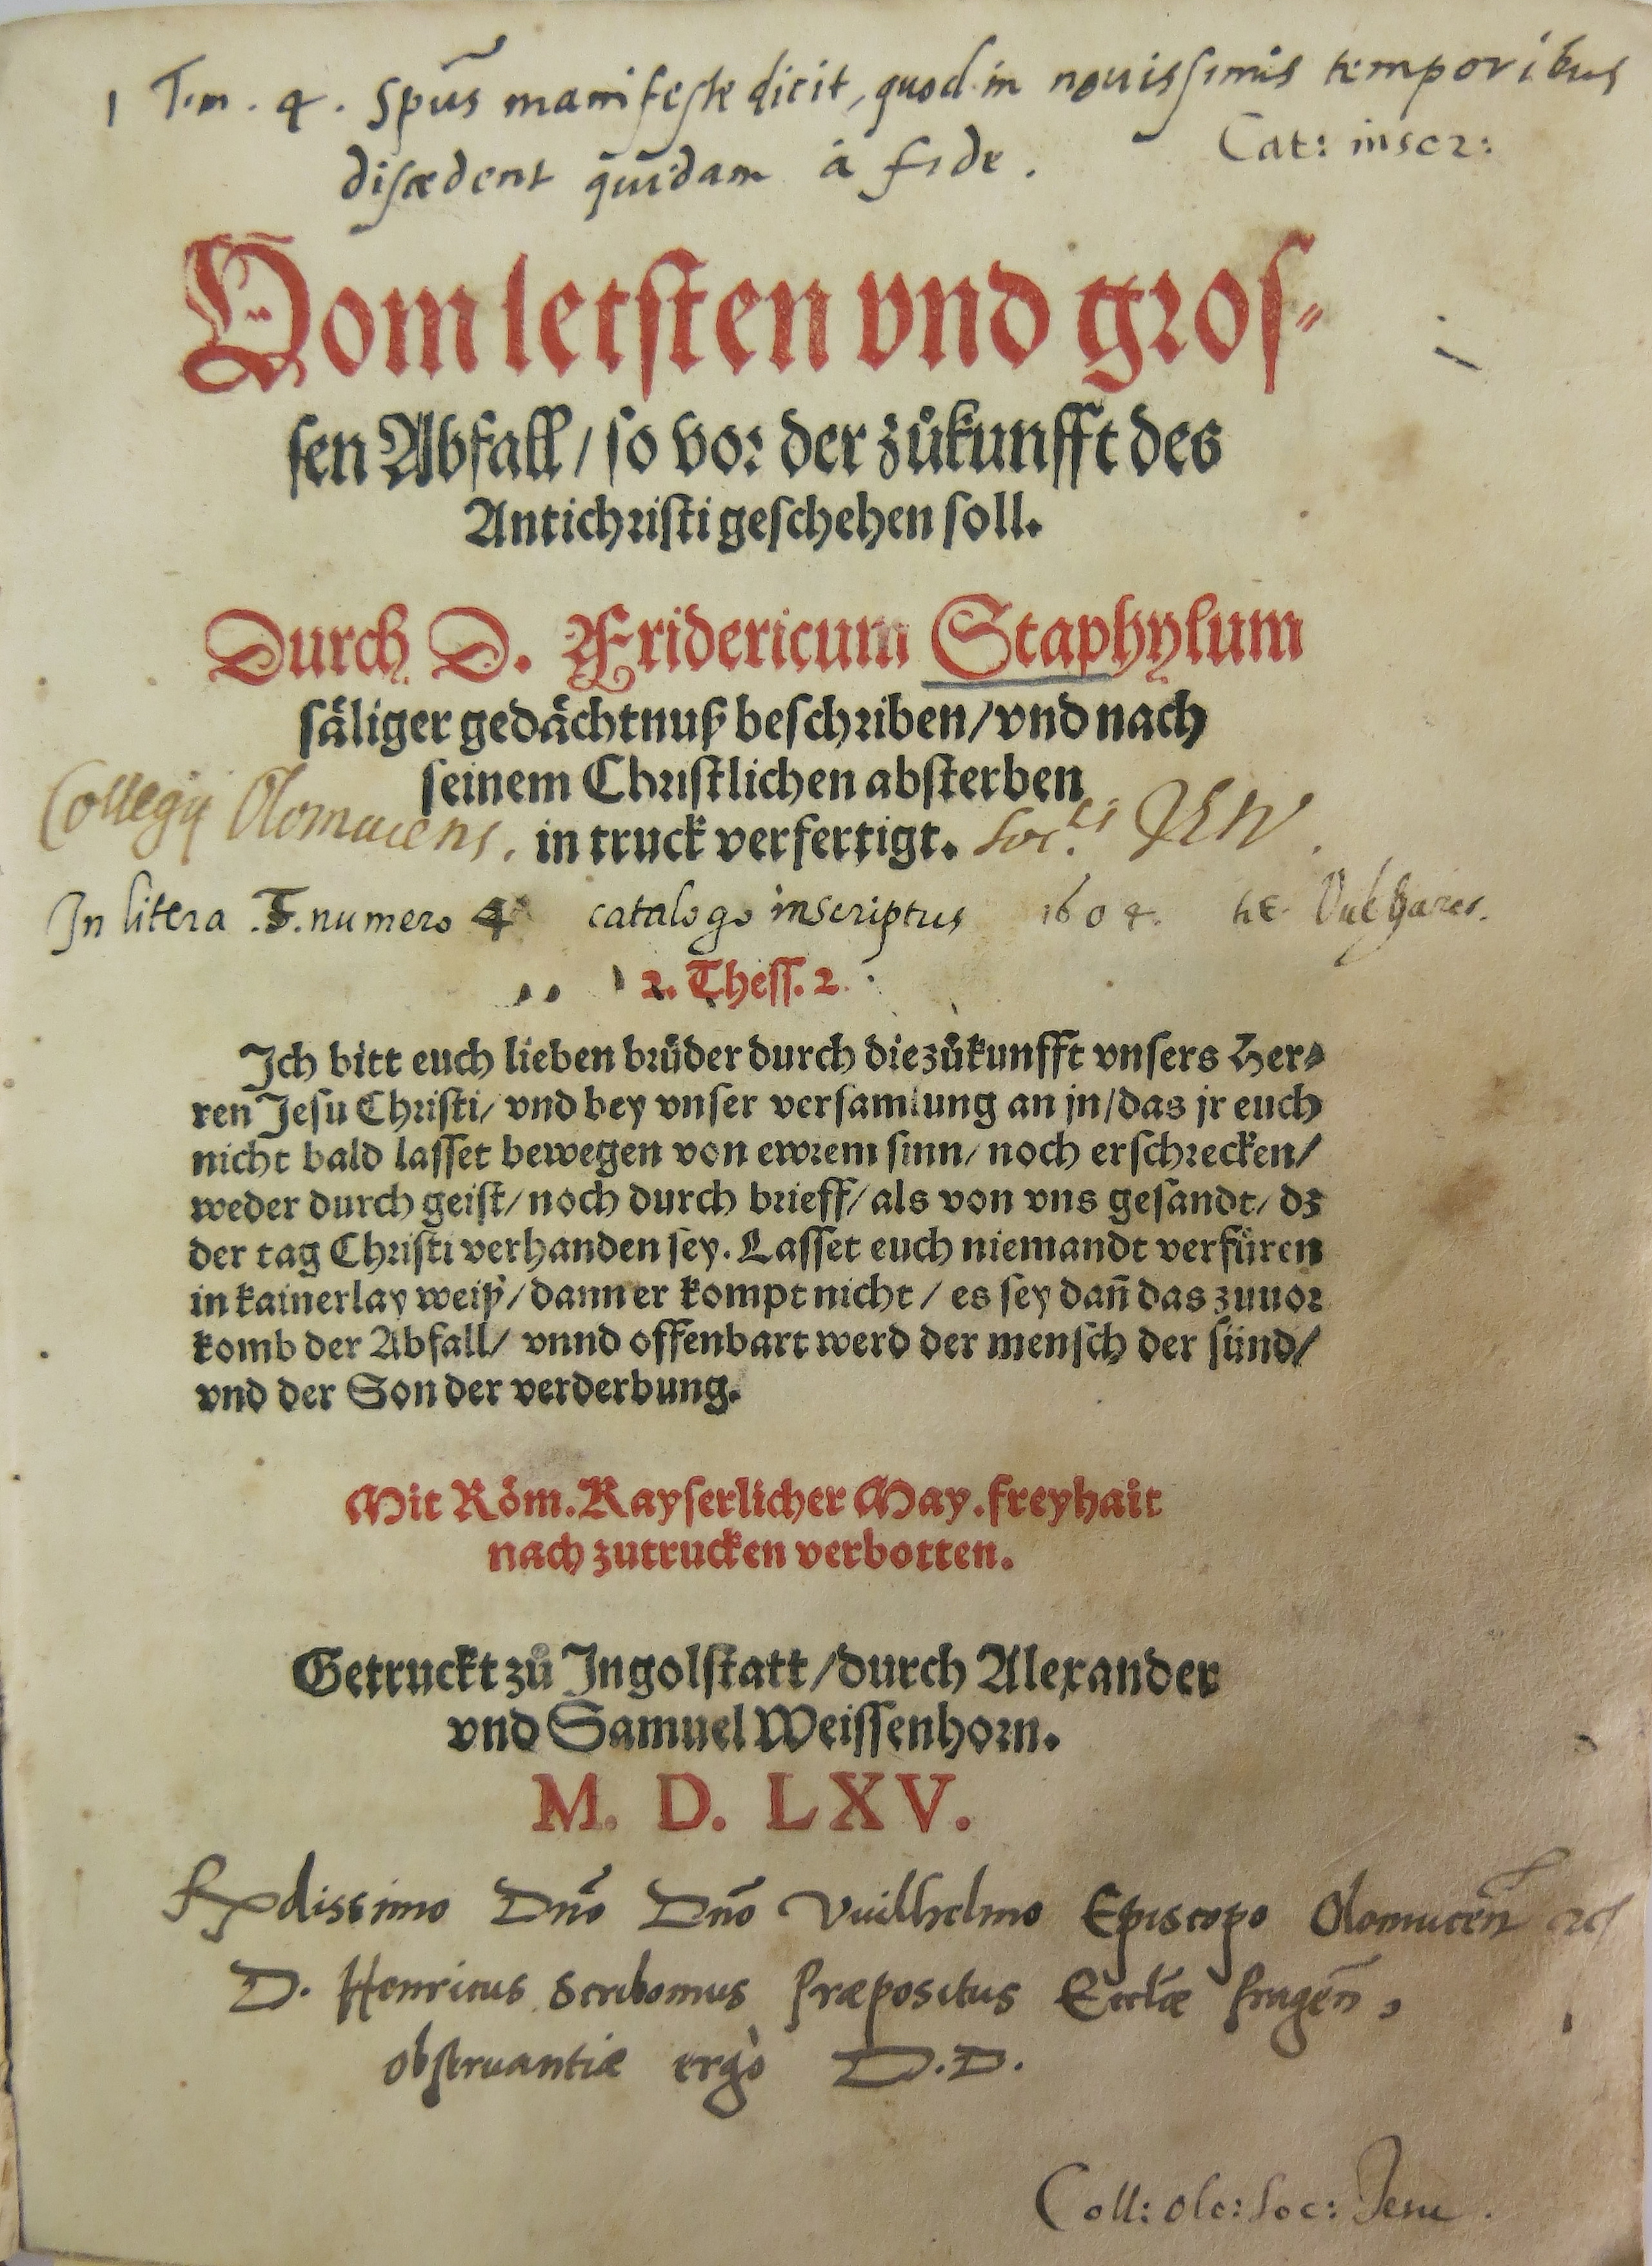 1 Tim. 4. Spūs manifeste dicit, quod in novissimis temporibus
Cat: inscr:
discedent quidam à fide.
Vom letsten vnd gros⸗
sen Abfall / so vor der zůkunfft des
Antichristi geschehen soll.
Durch D. Fridericum Staphylum
säliger gedächtnuß beschriben / vnd nach
seinem Christlichen absterben
in truck verfertigt.
Collegij Olomucens. Soc.tis
In litera .S. numero 4 catalogo inscriptus 1604.
2. Thess. 2.
Ich bitt euch lieben brůder durch die zůkunfft vnsers Her⸗
ren Jesu Christi / vnd bey vnser versamlung an jn / das jr euch
nicht bald lasset bewegen von ewrem sinn / noch erschrecken /
weder durch geist / noch durch brieff / als von vns gesandt / dz
der tag Christi verhanden sey. Lasset euch niemandt verfüren
in kainerlay weiß / dann er kompt nicht / es sey dañ das zuuor
komb der Abfall / vnnd offenbart werd der mensch der sünd /
vnd der Son der verderbung.
Mit Röm. Kayserlicher May. freyhait
nach zutrucken verbotten.
Getruckt zů Ingolstatt / durch Alexander
vnd Samuel Weissenhorn.
M. D. LXV.
Rdissimo Dño Dño Vuilhelmo Episcopo Olomuceñ
D. Henricus Scribonius Præpositus Ecclæ Prageñ,
obseruantiæ ergò D. D.
Coll: Olo: Soc: Jesu.